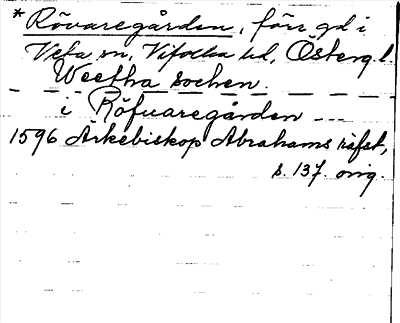 *Rövaregården, förr gd i
Veta sn, Vifolka hd, Österg. l.
Weetha sochen.
i Röfuaregården ---
1596 Ärkebiskop Abrahams räfst,
s. 137. orig.